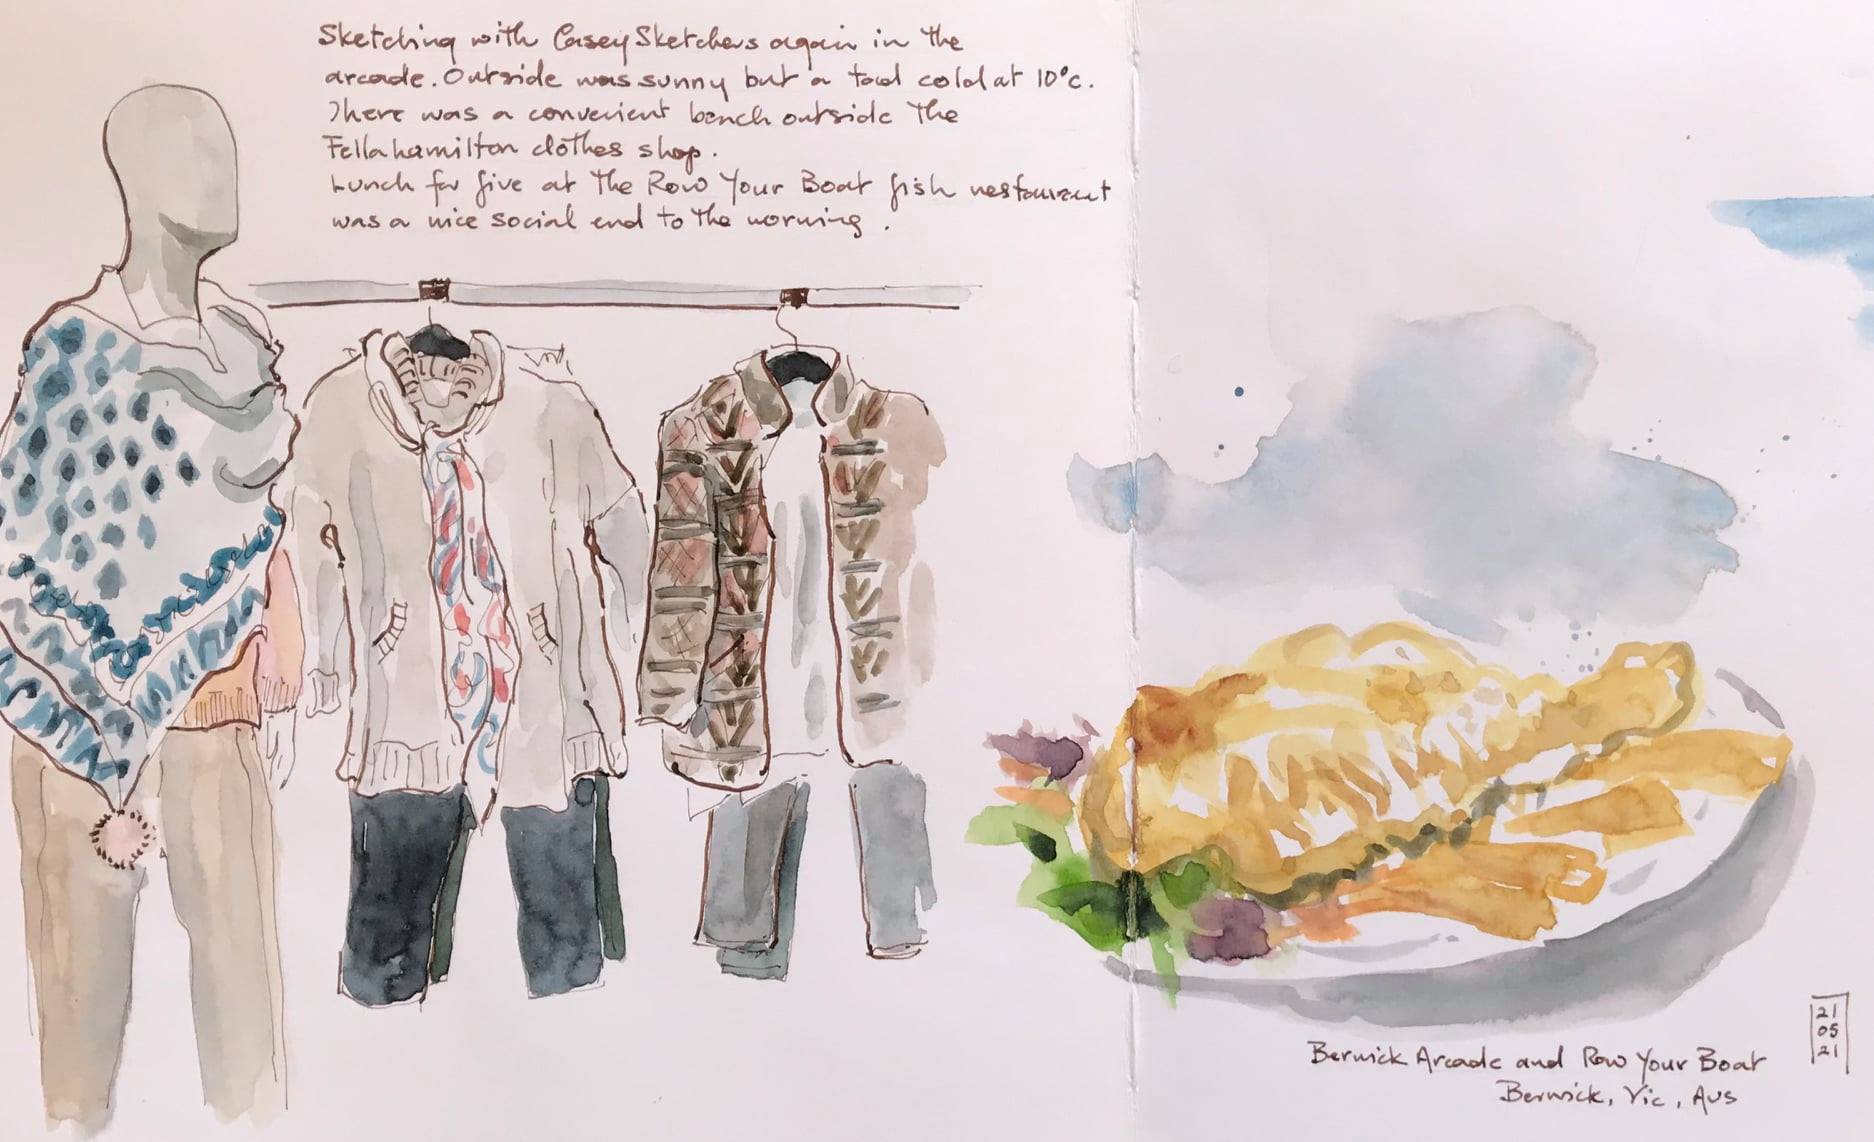 Sketching with Casey Sketchers again in the
arcade. Outside was sunny but a tad cold at 10°c.
There was a convenient bench outside the
Fellahamilton clothes shop.
Lunch for five at the Row Your Boat fish restaurant
was a nice social end to the morning.
21
05
21
Berwick Arcade and Row Your Boat
Berwick, Vic, Aus